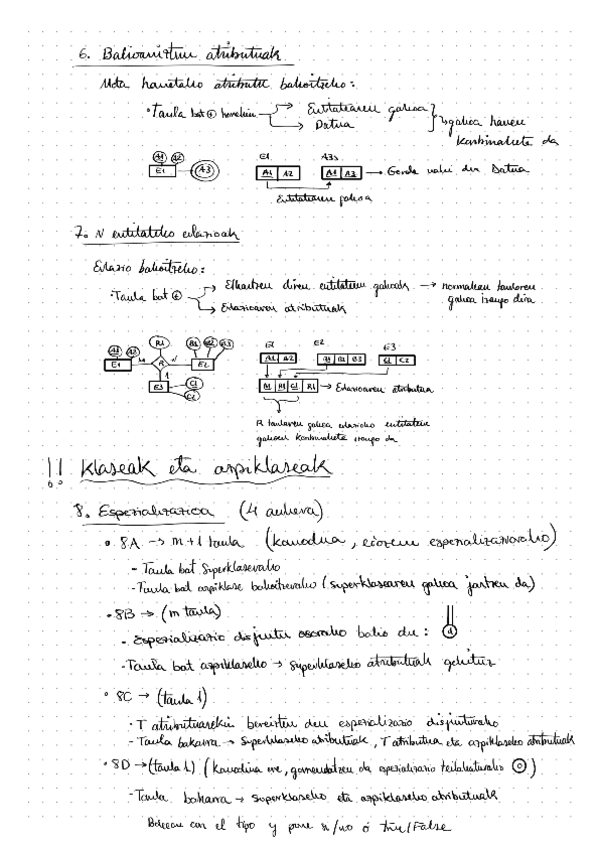 6. Balioanitzun atributuak
Mota honetako atributu bakoitzeko:
• Taula bat ⊕ honekin → Entitatearen gakoa
→ Datua
gakoa hauen
konbinaketa da
A1 A2 E1 A3
E1 A3s
A1 A2 A1 A3 → Gorde nahi den Datua
Entitatearen gakoa
7. N entitateko erlazioak
Erlazio bakoitzeko:
• Taula bat ⊕ → Elkartzen diren entitateen gakoak → normalean taularen
gakoa izango dira
→ Erlazioaren atributuak
R1
A1 A2 B1 B2 B3 E1 E2 E3
E1 N R N E2 A1 A2 B1 B2 B3 C1 C2
1
E3 C1 A1 B1 C1 R1 → Erlazioaren atributua
C2
R taularen gakoa erlazioko entitateen
gakoen konbinaketa izango da
!! Klaseak eta azpiklaseak
8. Espezializazioa (4 aukera)
• 8A → m+1 taula (kanodina, espezializaziorako)
- Taula bat Superklaserako
- Taula bat azpiklase bakoitzerako (superklasearen gakoa jartzen da)
• 8B → (m taula)
- Espezializazio disjuntu osorako balio du: d
- Taula bat azpiklaseko → superklaseko atributuak gehituz
• 8C → (taula 1)
• T atributuarekin bereizten den espezializazio disjunturako
- Taula bakarra → Superklaseko atributuak, T atributua eta azpiklaseko atributuak
• 8D → (taula 1) (kanodina ere, gomendatzen da espezializazio teilakaturako O)
- Taula bakarra → superklaseko eta azpiklaseko atributuak
Boolean con el tipo y pone si/no ó True/False